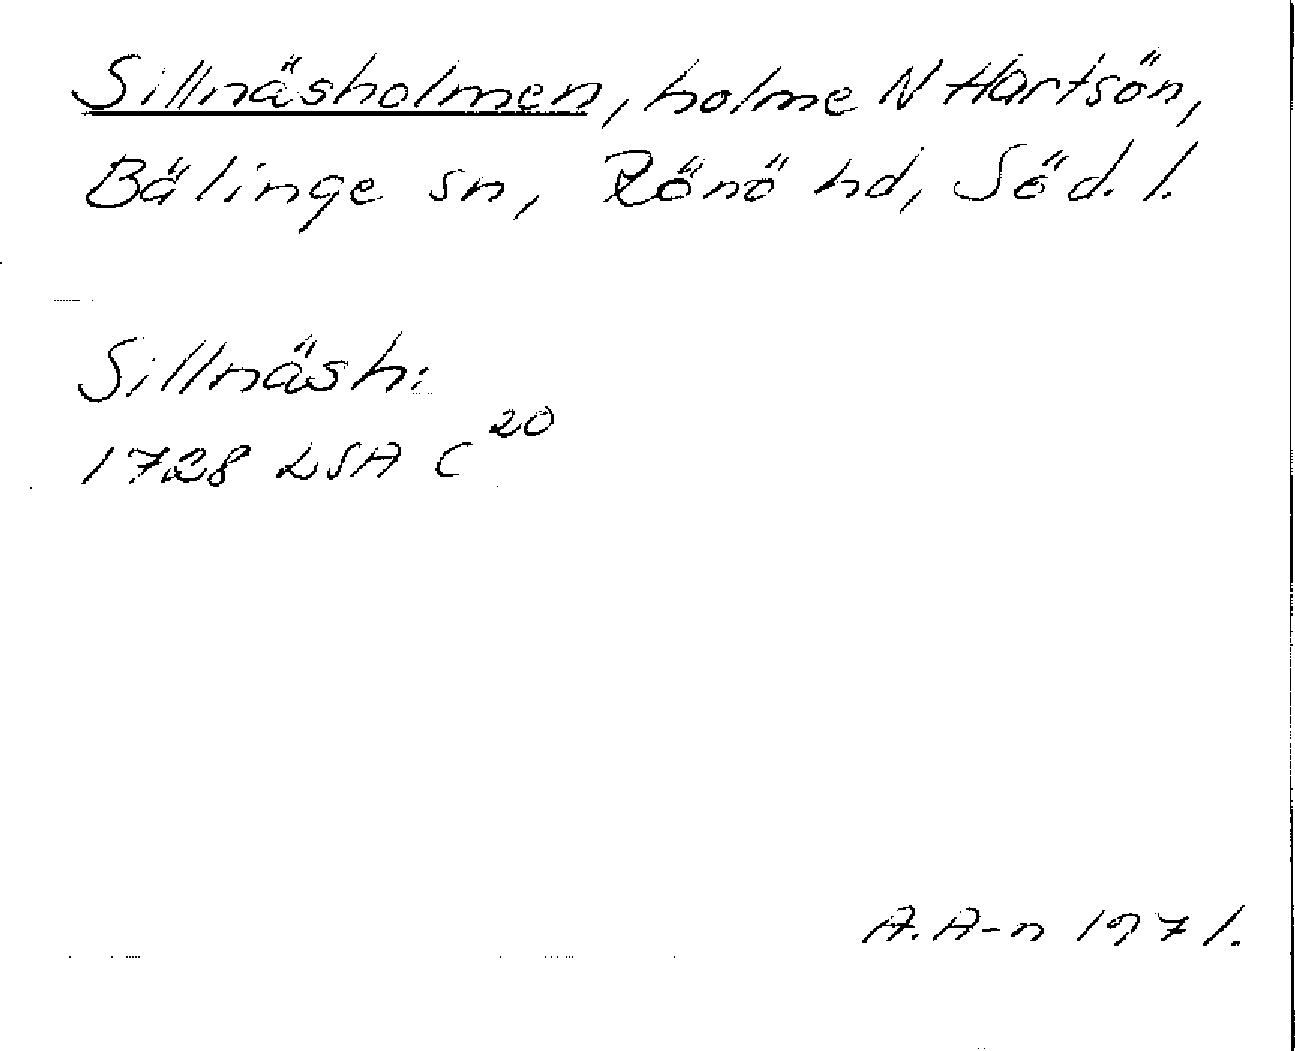 Sillnäsholmen, holme N Hartsön,
Bälinge sn, Rönö hd, Söd. l.
Sillnäsh:
1728 LSA C²⁰
A. A-n 1971.